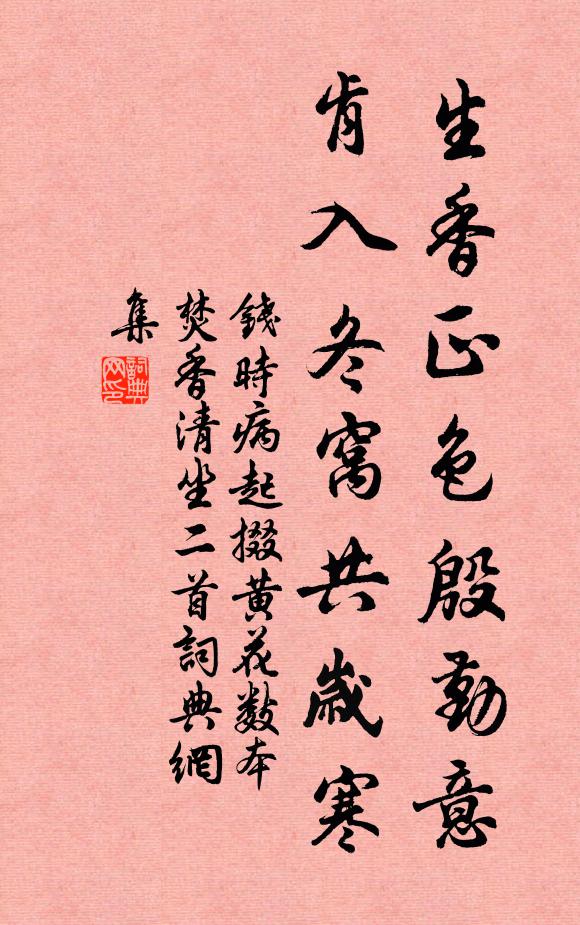 生香正色殷勤意
肯入冬窩共歲寒
錢時病起掇黃花數本
焚香清坐二首詞典網
集
詞典
网印